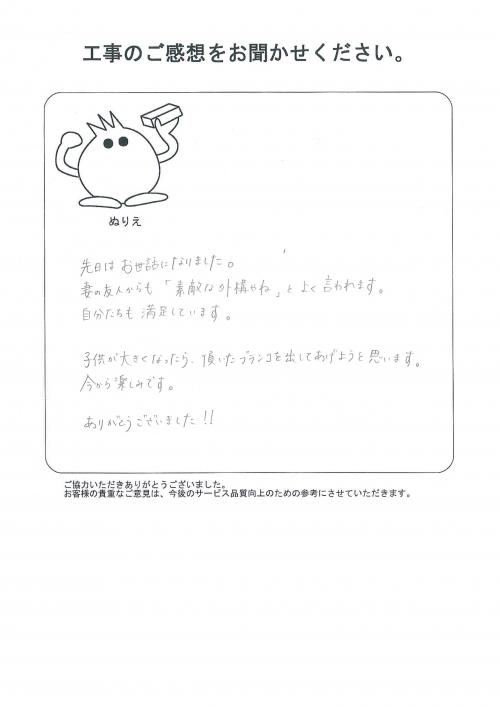 工事のご感想をお聞かせください。
ぬりえ
先日は お世話になりました。
妻の友人からも「素敵な外構やね」と よく言われます。
自分たちも 満足しています。
子供が大きくなったら、頂いたブランコを出してあげようと思います。
今から楽しみです。
ありがとうございました!!
ご協力いただきありがとうございました。
お客様の貴重なご意見は、今後のサービス品質向上のための参考にさせていただきます。